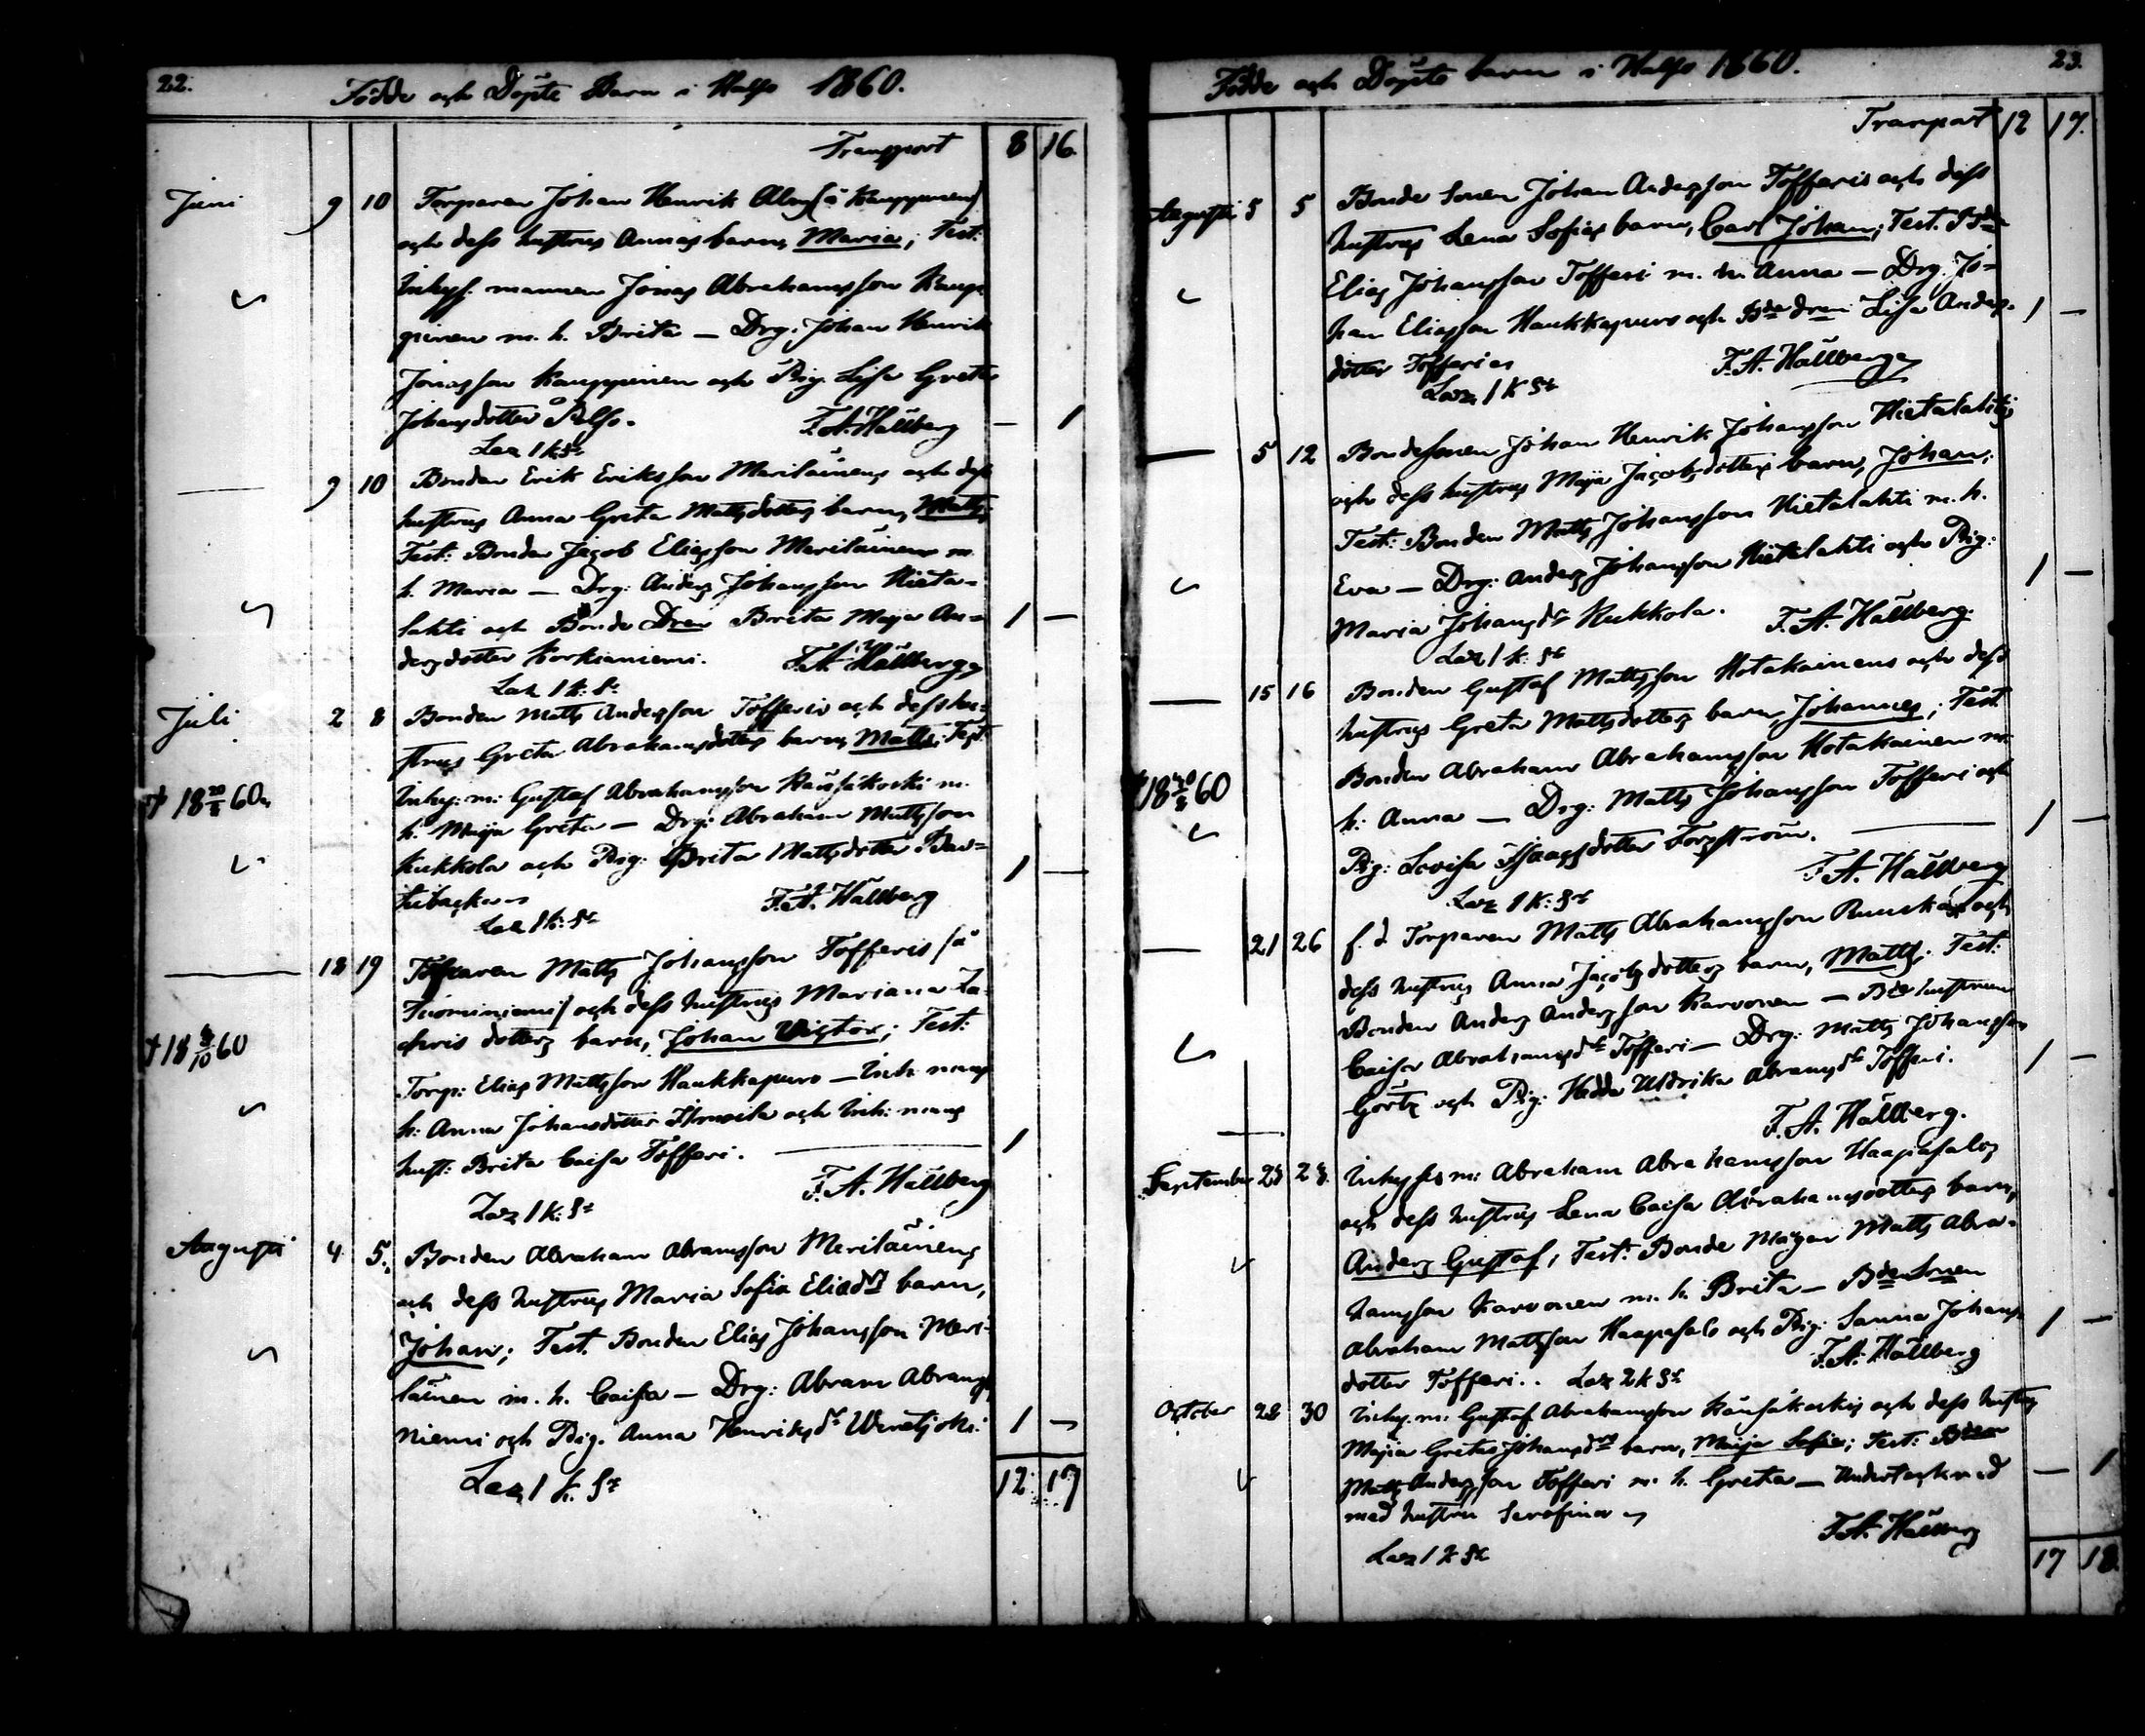 22.
Födde och Döpte Barn i Halso 1860.
Transport 8 16.
Juni 9 10 Torparen Johan Henrik Alm (å Kauppinen)
och dess hustrus Annas barn, Maria; Test:
Inhys. mannen Jonas Abrahamsson Kaup-
pinen m. h. Brita — Drg: Johan Henrik
Jonasson Kauppinen och Pig. Lisa Greta
Johansdotter Ålso. F. A. Hällberg — 1
9 10 Bonden Erik Eriksson Meriläinens och dess
hustrus Anna Greta Mattsdotters barn, Matts;
Test: Bonden Jacob Eliasson Meriläinen m.
h. Maria — Drg: Anders Johansson Hieta-
lahti och Bonde Dren Brita Maja An- 1 —
dersdotter Korkianiemi. F. A. Hällberg
Juli 2 8 Bonden Matts Andersson Tofferis och dess hu-
strus Greta Abrahamsdotters barn, Matts; Test:
Inhy: m: Gustaf Abrahamsson Känsäkoski m.
† 18 20/8 60
h. Maja Greta — Drg: Abraham Mattsson
Kukkola och Pig: Brita Mattsdotter 1 —
F. A. Hällberg
18 19 Torparen Matts Johansson Tofferis (å
Tuominiemi) och dess hustrus Mariana Za-
chris dotters barn, Johan Victor; Test:
† 18 /10 60
Torp: Elias Mattsson Haukkapuro — Inh: mans
h: Anna Johansdotter och Inh: mans
hust: Brita Caisa Tofferi. 1
F. A. Hällberg
Augusti 4 5. Bonden Abraham Abramsson Meriläinens
och dess hustrus Maria Sofia Eliasdrs barn,
Johan; Test. Bonden Elias Johansson Meri-
läinen m. h. Caisa — Drg: Abram Abrams
niemi och Pig. Anna Henriksdr Wenetjoki. 1 —
12 17
23.
Födde och Döpte barn i Halso 1860.
Transport 12 17.
Augusti 5 5 Bonde Sonen Johan Andersson Tofferis och dess
hustrus Lena Sofias barn, Carl Johan; Test. Bden
Elias Johansson Tofferi m. h. Anna — Drg. Jo-
han Eliasson Haukkapuro och Bde dren Lisa Anders- 1 —
dotter Tofferi F. A. Hällberg
5 12 Bondesonen Johan Henrik Johansson Hietalahtis
och dess hustrus Maja Jacobsdotters barn, Johan;
Test: Bonden Matts Johansson Hietalahti m. h.
Eva — Drg: Anders Johansson Hietalahti och Pig: 1 —
Maria Johansdr Kukkola. F. A. Hällberg.
15 16 Bonden Gustaf Mattsson Hotakainens och dess
hustrus Greta Mattsdotters barn, Johannes; Test.
Bonden Abraham Abrahamsson Hotakainen m.
† 18 20/8 60
h: Anna — Drg: Matts Johansson Tofferi och 1 —
Pig: Lovisa Isaacsdotter Forsström.
F. A. Hällberg
21 26 f. d. Torparen Matts Abrahamsson och
dess hustrus Anna Jacobsdotters barn, Matts; Test:
Bonden Anders Andersson Karvonen — Bde hustrun
Caisa Abrahamsdr Tofferi — Drg: Matts Johansson
Görtz och Pig: Hedda Uldrika Abramsdr Tofferi. 1 —
F. A. Hällberg.
September 23 23. Inhyses m: Abraham Abrahamsson Haapasalos
och dess hustrus Lena Caisa Abrahamsdotters barn,
Anders Gustaf; Test: Bonde Mågen Matts Abra-
hamsson Karvonen m. h. Brita — Bde Sonen
Abraham Mattsson Haapasalo och Pig: Sanna Johans- 1 —
dotter Tofferi. F. A. Hällberg
October 28 30 Inhy. m: Gustaf Abrahamsson Känsäkoskis och dess hustrus
Majia Gretas Johansdrs barn, Maija Sofia; Test: Bden
Matts Andersson Tofferi m. h. Greta — Undertecknad — 1
med hustru Serafina
F. A. Hällberg
17 18.